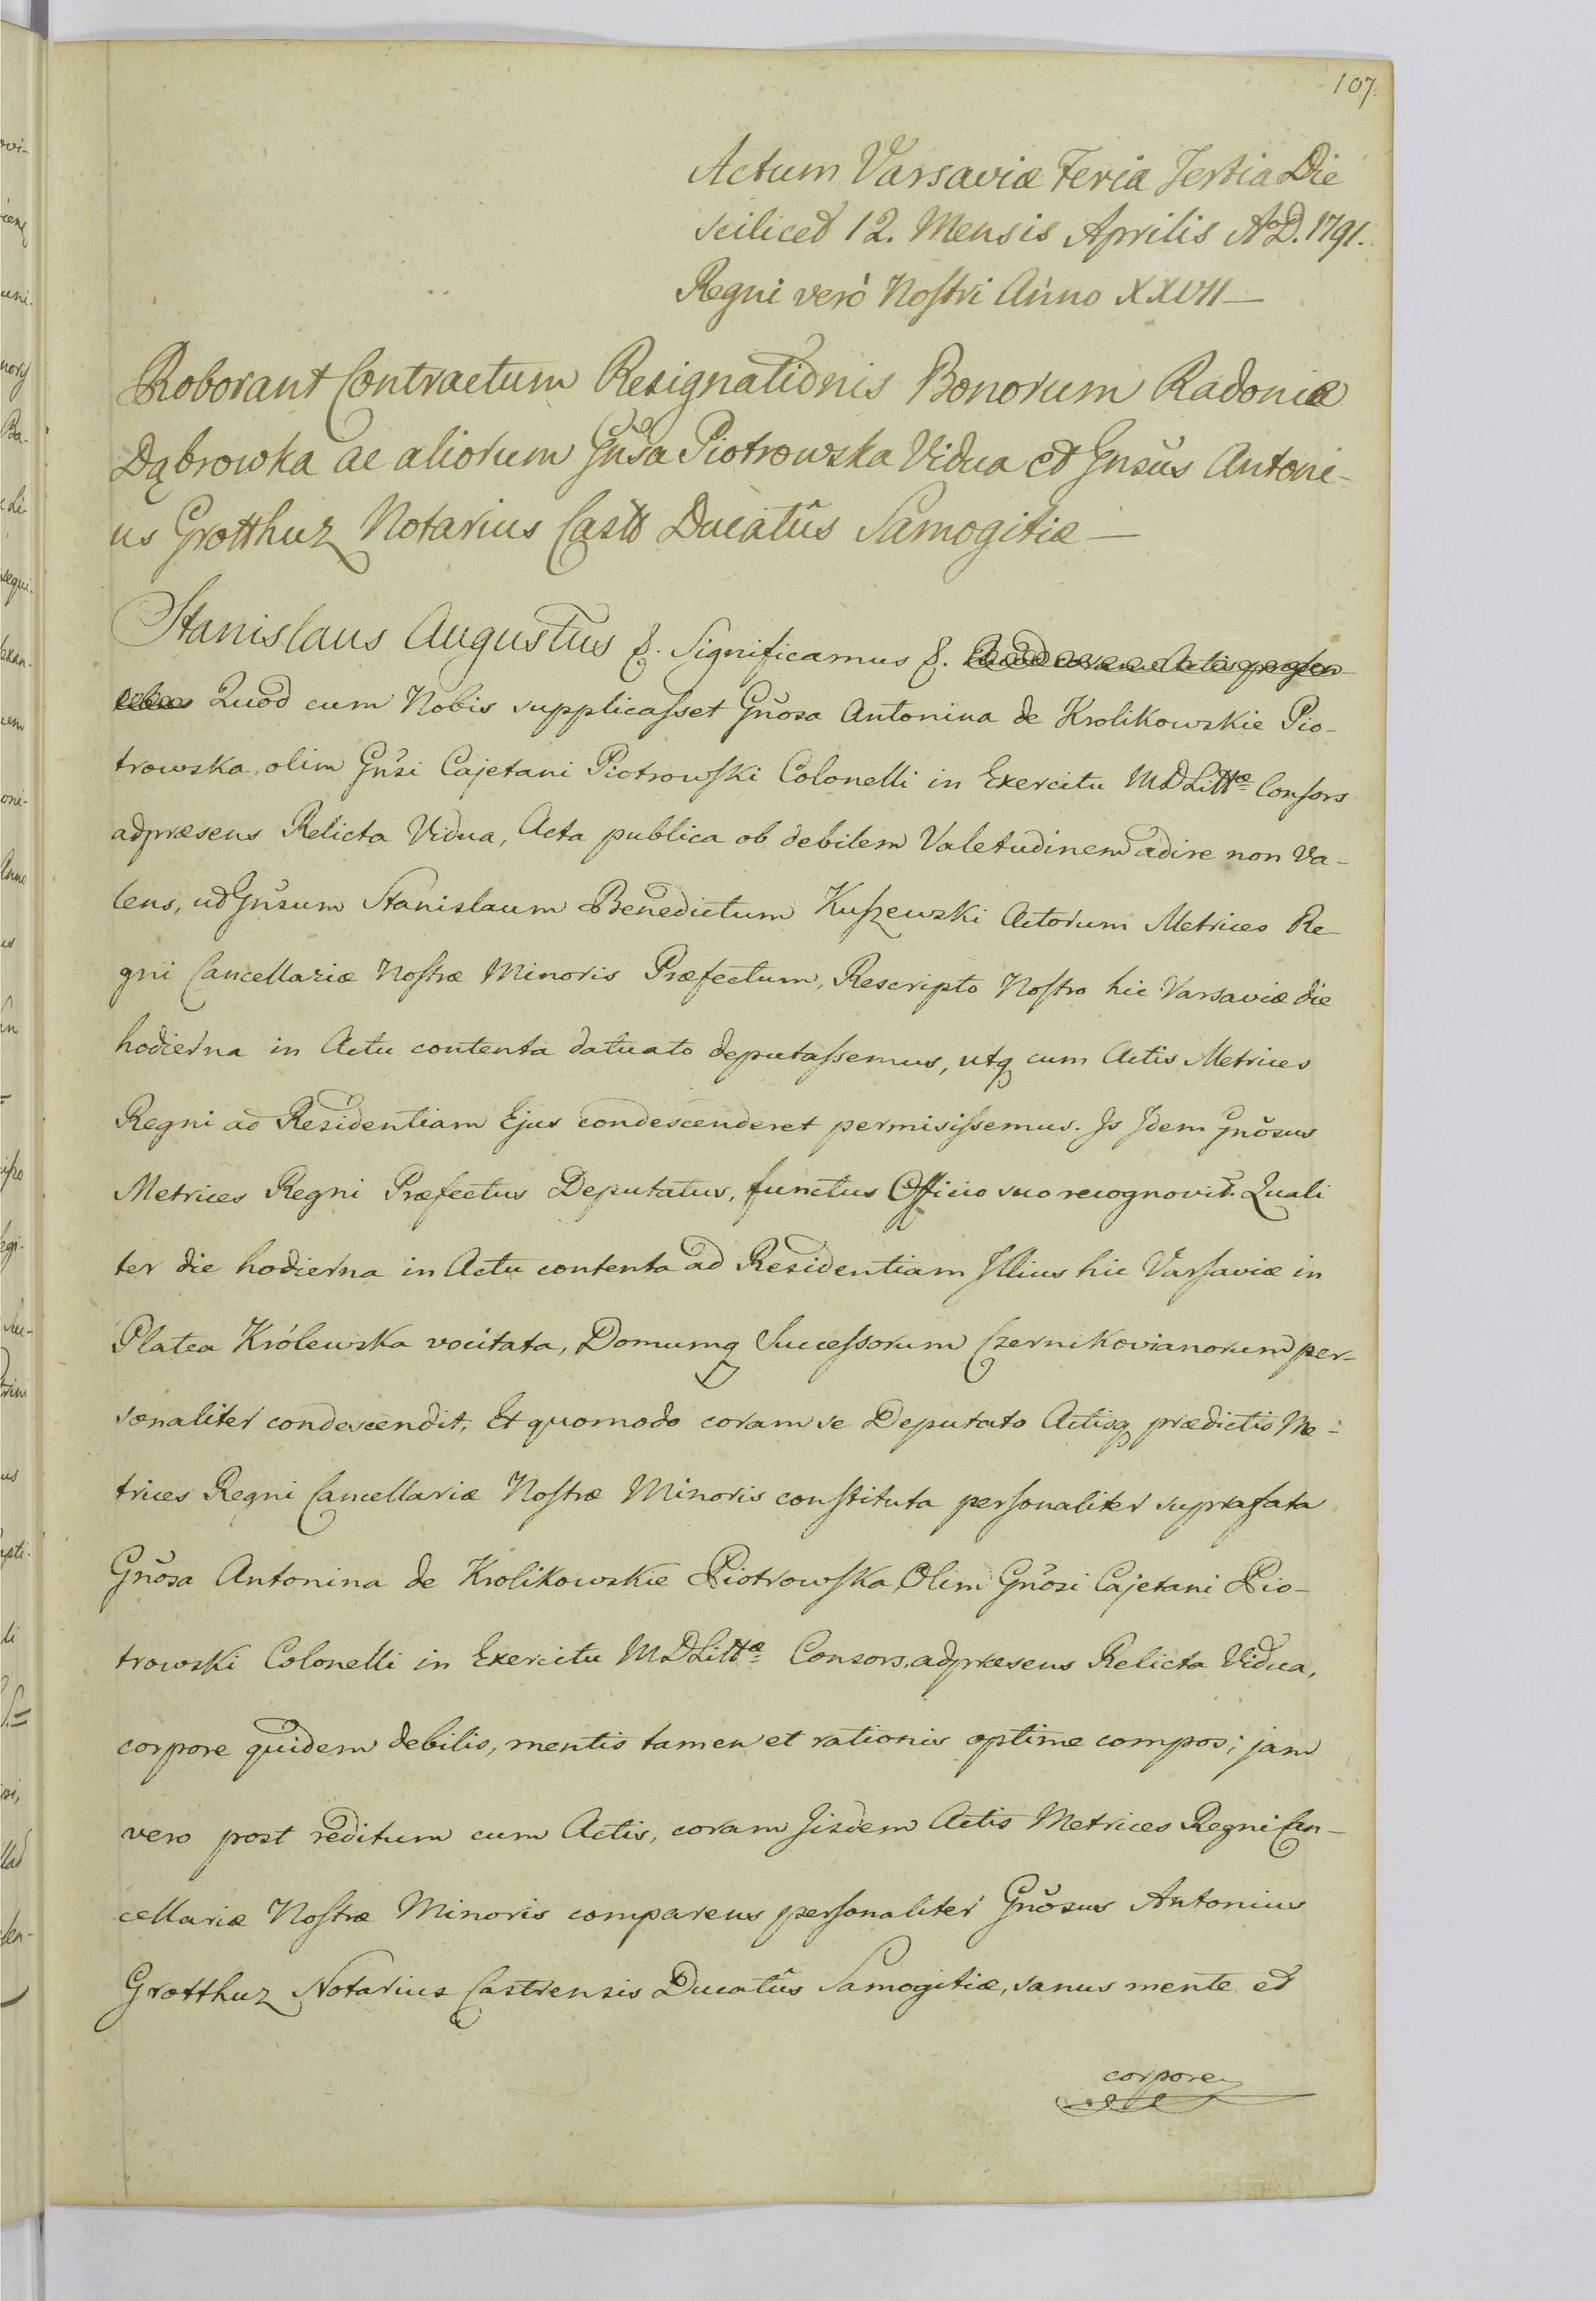 107.
Actum Varsaviæ Feria Tertia Die
scilicet 12. Mensis Aprilis Aº D. 1791.
Regni verò Noſtri Anno XXVII—
Roborant Contractum Resignationis Bonorum Radonia
Dąbrowka ac aliorum Gñsa Piotrowska Vidua et Gnsũs Antoni-
us Grotthuz Notarius Castr Ducatûs Samogitiæ—
Stanislaus Augustus &. Significamus &.
Quod cum Nobis supplicaſset Gñosa Antonina de Krolikowskie Pio-
trowska, olim Gñsi Cajetani Piotrowſki Colonelli in Exercitu MDLittæ Conſors
adpræsens Relicta Vidua, Acta publica ob debilem Valetudinem adire non Va-
lens, ut Gñsum Stanislaum Benedictum Kuſzewski Actorum Metrices Re-
gni Cancellariæ Noſtræ Minoris Præfectum, Rescripto Noſtro hic Varsaviæ die
hodierna in Actu contenta datuato deputaſsemus, utq cum Actis Metrices
Regni ad Residentiam Ejus condescenderet permisiſsemus. Is Idem Gñosus
Metrices Regni Præfectus Deputatus, functus Officio suo recognovit. Quali
ter die hodierna in Actu contenta ad Residentiam Illius hic Varſaviæ in
Platea Królewska vocitata, Domumq Succeſsorum Czernikovianorum per-
sonaliter condescendit, Et quomodo coram se Deputato Actisq prædictis Me-
trices Regni Cancellariæ Noſtræ Minoris conſtituta perſonaliter suprafata
Gñosa Antonina de Krolikowskie Piotrowſka, Olim Gñosi Cajetani Pio-
trowski Colonelli in Exercitu MDLittæ Consors, adpræsens Relicta Vidua,
corpore quidem debilis, mentis tamen et rationis optime compos; jam
vero post reditum cum Actis, coram Iisdem Actis Metrices Regni Can-
cellariæ Noſtræ Minoris comparens perſonaliter Gñosus Antonius
Grotthuz Notarius Castrensis Ducatûs Samogitiæ, sanus mente et
corpore